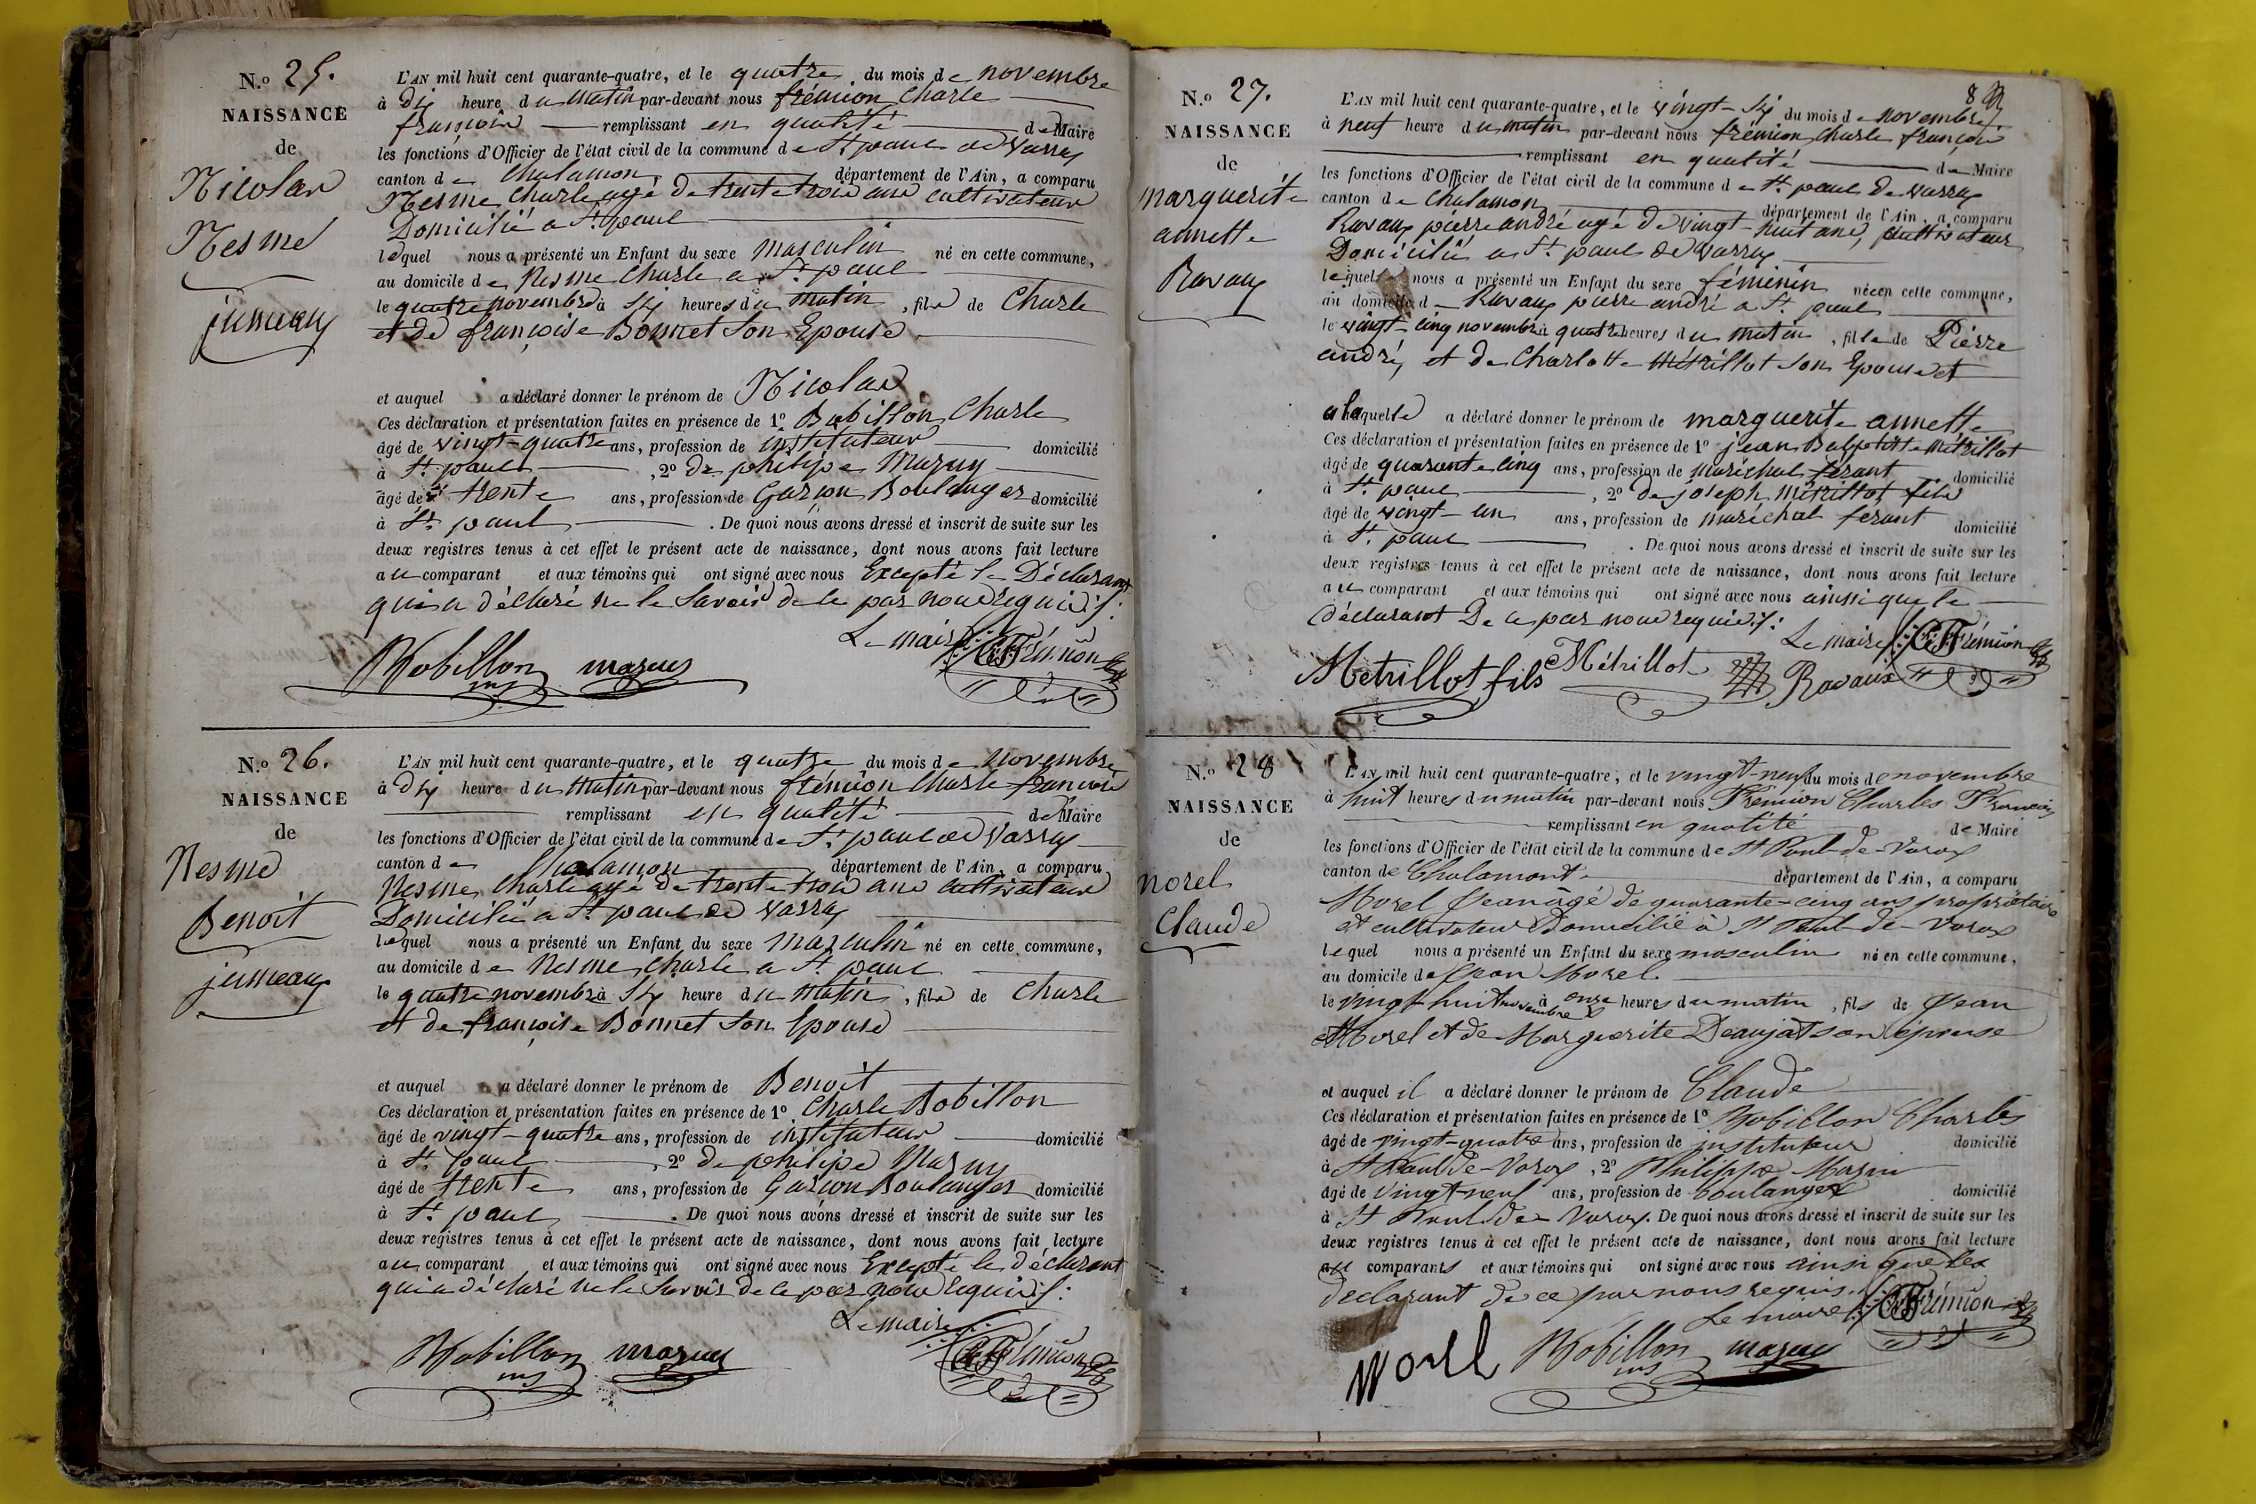 N.º 25.
NAISSANCE
de
Nicolas
Nesme
jumeaux
L'AN mil huit cent quarante-quatre, et le quatre du mois de novembre
à dix heure du matin par-devant nous frémion Charle
françois remplissant en qualité de Maire
les fonctions d'Officier de l'état civil de la commune de St. paul de Varax
canton de Chalamon département de l'Ain, a comparu
Nesme Charle agé de trente trois ans cultivateur
Domicilié a St. paul
lequel nous a présenté un Enfant du sexe masculin né en cette commune,
au domicile de Nesme Charle a St. paul
le quatre novembre à six heures du matin, fils de Charle
et de françoise Bonnet son Epouse
et auquel a déclaré donner le prénom de Nicolas
Ces déclaration et présentation faites en présence de 1º Robillon Charle
âgé de vingt-quatre ans, profession de instituteur domicilié
à St. paul, 2º de philipe Mazuy
âgé de trente ans, profession de Garçon Boulanger domicilié
à St. paul. De quoi nous avons dressé et inscrit de suite sur les
deux registres tenus à cet effet le présent acte de naissance, dont nous avons fait lecture
au comparant et aux témoins qui ont signé avec nous Excepté le Déclarant
qui a déclaré ne le savoir de ce par nous requis.
Le maire
Robillon mazuy CFrémion
N.º 26.
NAISSANCE
de
Nesme
Benoit
jumeaux
L'AN mil huit cent quarante-quatre, et le quatre du mois de novembre
à dix heure du matin par-devant nous frémion Charle françois
remplissant en qualité de Maire
les fonctions d'Officier de l'état civil de la commune de St. paul de Varax
canton de Chalamon département de l'Ain, a comparu
Nesme Charle agé de trente trois ans cultivateur
Domicilié a St. paul de Varax
lequel nous a présenté un Enfant du sexe masculin né en cette commune,
au domicile de Nesme Charle a St. paul
le quatre novembre à six heure du matin, fils de Charle
et de françoise Bonnet son Epouse
et auquel a déclaré donner le prénom de Benoit
Ces déclaration et présentation faites en présence de 1º Charle Robillon
âgé de vingt-quatre ans, profession de instituteur domicilié
à St. paul, 2º de philipe Mazuy
âgé de trente ans, profession de Garçon Boulanger domicilié
à St. paul. De quoi nous avons dressé et inscrit de suite sur les
deux registres tenus à cet effet le présent acte de naissance, dont nous avons fait lecture
au comparant et aux témoins qui ont signé avec nous Excepté le déclarant
qui a déclaré ne le savoir de ce par nous requis.
Le maire
Robillon mazuy CFrémion
N.º 27.
NAISSANCE
de
marguerite
annette
Ravaux
L'AN mil huit cent quarante-quatre, et le vingt-six du mois de novembre
à neuf heure du matin par-devant nous frémion Charle françois
remplissant en qualité de Maire
les fonctions d'Officier de l'état civil de la commune de St. paul de Varax
canton de Chalamon département de l'Ain, a comparu
Ravaux pierre andré agé de vingt-huit ans, cultivateur
Domicilié a St. paul de Varax
lequel nous a présenté un Enfant du sexe féminin née en cette commune,
au domicile de Ravaux pierre andré a St. paul
le vingt-cinq novembre à quatre heures du matin, fille de Pierre
andré, et de Charlotte Métrillot son Epouse et
a laquelle a déclaré donner le prénom de marguerite annette
Ces déclaration et présentation faites en présence de 1º jean Babptiste Métrillot
âgé de quarante cinq ans, profession de maréchal férant domicilié
à St. paul, 2º de joseph Métrillot fils
âgé de vingt-un ans, profession de maréchal férant domicilié
à St. paul. De quoi nous avons dressé et inscrit de suite sur les
deux registres tenus à cet effet le présent acte de naissance, dont nous avons fait lecture
au comparant et aux témoins qui ont signé avec nous ainsi que le
déclarant De ce par nous requis.
Le maire CFrémion
Métrillot fils Métrillot Ravaux
N.º 28
NAISSANCE
de
morel
Claude
L'AN mil huit cent quarante-quatre, et le vingt-neuf du mois de novembre
à huit heures du matin par-devant nous Frémion Charles François
remplissant en qualité de Maire
les fonctions d'Officier de l'état civil de la commune de St Paul-de-Varax
canton de Chalamont département de l'Ain, a comparu
Morel Jean âgé de quarante-cinq ans propriétaire
et cultivateur Domicilié à St Paul-de-Varax
lequel nous a présenté un Enfant du sexe masculin né en cette commune,
au domicile de Jean Morel
le vingt-huit novembre à onze heures du matin, fils de Jean
Morel et de Marguerite Deaujat son épouse
et auquel il a déclaré donner le prénom de Claude
Ces déclaration et présentation faites en présence de 1º Robillon Charles
âgé de vingt-quatre ans, profession de instituteur domicilié
à St Paul de-Varax, 2º Philippe Mazui
âgé de vingt-neuf ans, profession de boulanger domicilié
à St Paul de-Varax. De quoi nous avons dressé et inscrit de suite sur les
deux registres tenus à cet effet le présent acte de naissance, dont nous avons fait lecture
aux comparants et aux témoins qui ont signé avec nous ainsi que les
déclarant de ce par nous requis.
Le maire CFrémion
morel Robillon mazuy